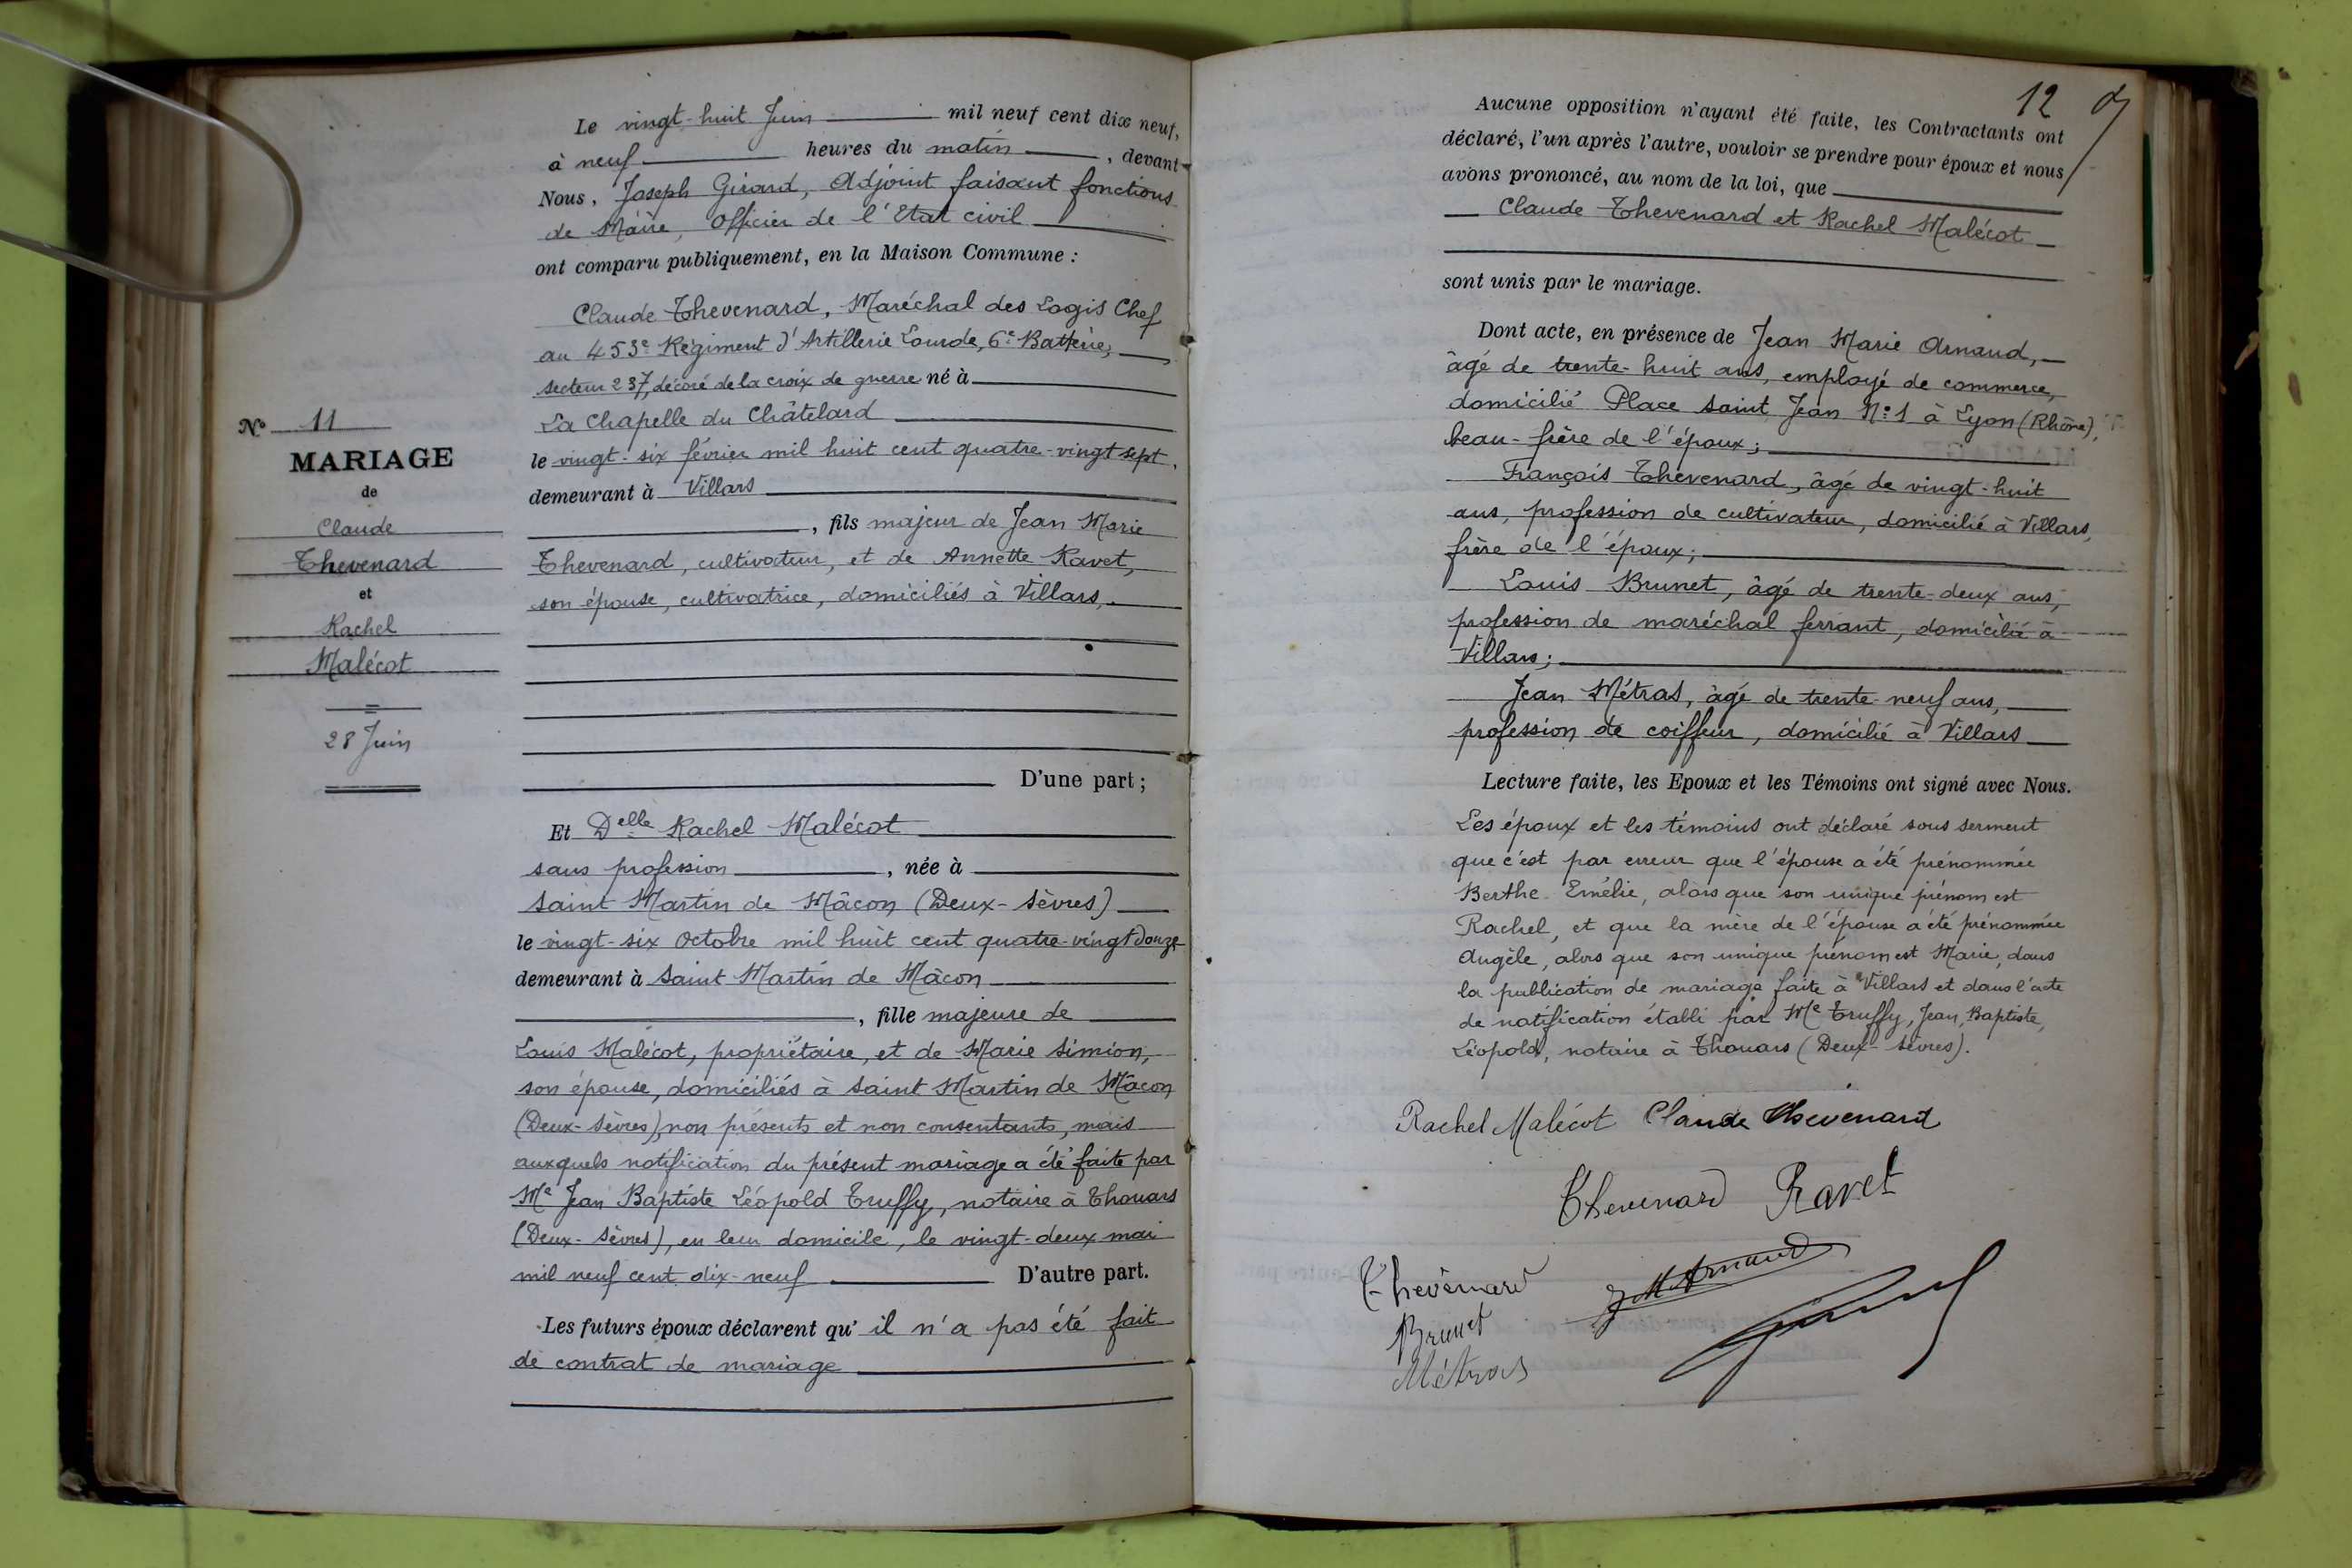 Nº 11
MARIAGE
de
Claude
Thevenard
et
Rachel
Malécot
28 Juin
Le vingt-huit Juin mil neuf cent dix neuf,
à neuf heures du matin, devant
Nous, Joseph Girard, Adjoint faisant fonctions
de Maire, Officier de l'Etat civil
ont comparu publiquement, en la Maison Commune :
Claude Thevenard, Maréchal des Logis Chef
au 453e Régiment d'Artillerie Lourde, 6e Batterie,
secteur 237, décoré de la croix de guerre né à
La Chapelle du Châtelard
le vingt-six février mil huit cent quatre-vingt sept,
demeurant à Villars
, fils majeur de Jean Marie
Thevenard, cultivateur, et de Annette Ravet,
son épouse, cultivatrice, domiciliés à Villars,
D'une part ;
Et Delle Rachel Malécot
sans profession, née à
Saint Martin de Mâcon (Deux-Sèvres)
le vingt-six Octobre mil huit cent quatre-vingt douze
demeurant à Saint Martin de Mâcon
, fille majeure de
Louis Malécot, propriétaire, et de Marie Simion,
son épouse, domiciliés à Saint Martin de Mâcon
(Deux-Sèvres), non présents et non consentants, mais
auxquels notification du présent mariage a été faite par
Me Jean Baptiste Léopold Truffy, notaire à Thouars
(Deux-Sèvres), en leur domicile, le vingt-deux mai
mil neuf cent dix-neuf D'autre part.
Les futurs époux déclarent qu'il n'a pas été fait
de contrat de mariage
12
Aucune opposition n'ayant été faite, les Contractants ont
déclaré, l'un après l'autre, vouloir se prendre pour époux et nous
avons prononcé, au nom de la loi, que
Claude Thevenard et Rachel Malécot
sont unis par le mariage.
Dont acte, en présence de Jean Marie Arnaud,
âgé de trente-huit ans, employé de commerce,
domicilié Place Saint Jean Nº 1 à Lyon (Rhône),
beau-frère de l'époux ;
François Thevenard, âgé de vingt-huit
ans, profession de cultivateur, domicilié à Villars,
frère de l'époux ;
Louis Brunet, âgé de trente-deux ans,
profession de maréchal ferrant, domicilié à
Villars ;
Jean Métras, âgé de trente neuf ans,
profession de coiffeur, domicilié à Villars
Lecture faite, les Epoux et les Témoins ont signé avec Nous.
Les époux et les témoins ont déclaré sous serment
que c'est par erreur que l'épouse a été prénommée
Berthe Emélie, alors que son unique prénom est
Rachel, et que la mère de l'épouse a été prénommée
Angèle, alors que son unique prénom est Marie, dans
la publication de mariage faite à Villars et dans l'acte
de notification établi par Me Truffy, Jean, Baptiste,
Léopold, notaire à Thouars (Deux-Sèvres).
Rachel Malécot Claude Thevenard
Thevenard Ravet
Thevenard JMArnaud
Brunet Girard
Métras